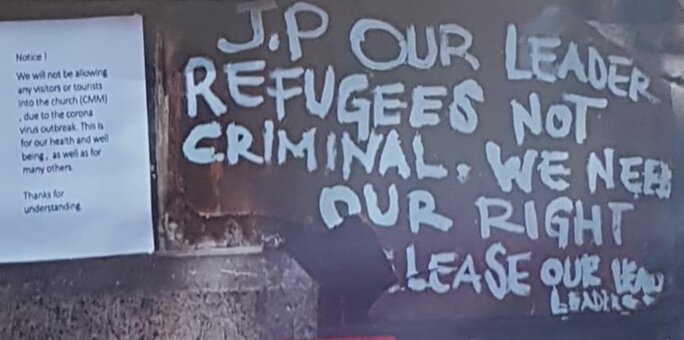 Notice !
We will not be allowing
any visitors or tourists
into the church (CMM)
, due to the corona
virus outbreak. This is
for our health and well
being , as well as for
many others.
Thanks for
understanding
J.P OUR LEADER
REFUGEES NOT
CRIMINAL. WE NEED
OUR RIGHT
LEASE OUR
LEADER